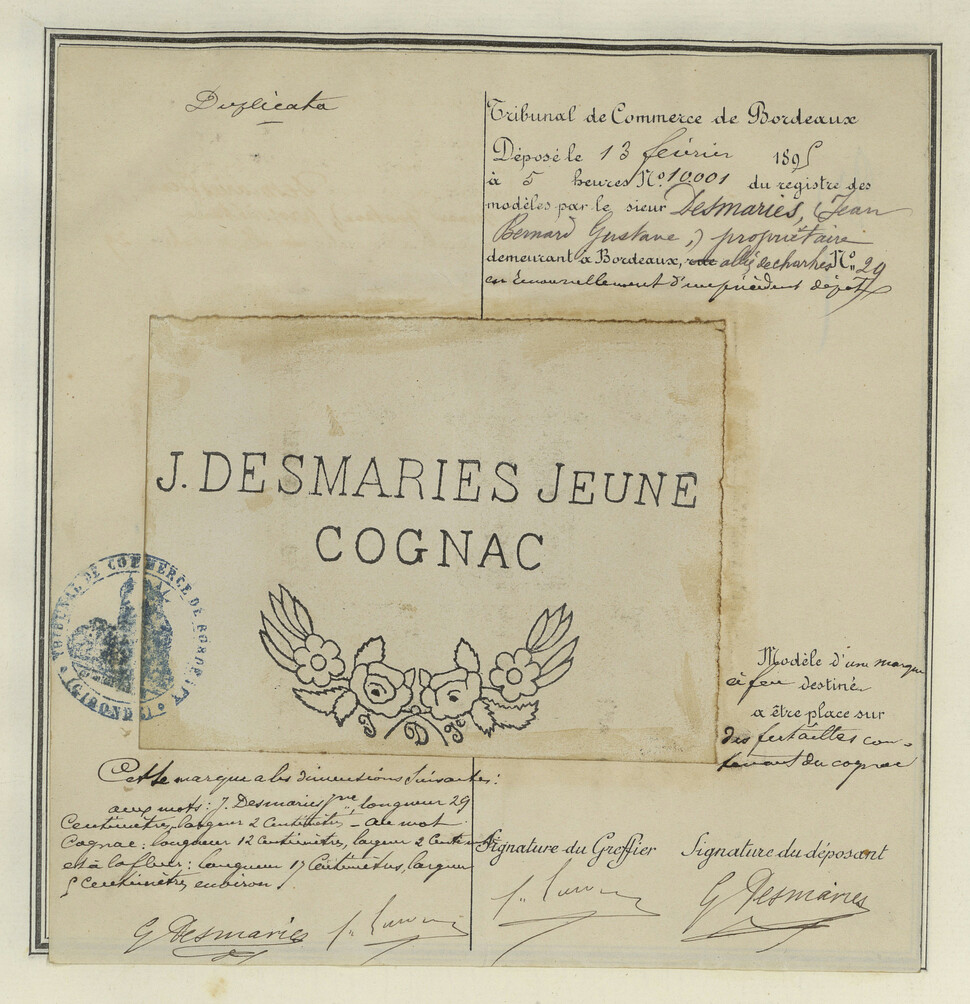 Duplicata
Tribunal de Commerce de Bordeaux
Déposé le 13 février 1895
à 5 heures No. 10.001 du registre des
modèles par le sieur Desmaries, (Jean
Bernard Gustave,) propriétaire
demeurant à Bordeaux, rue allée de chartres No. 29
en renouvellement d'un précédent dépôt
J. DESMARIES JEUNE
COGNAC
J D Je
TRIBUNAL DE COMMERCE DE BORDEAUX
(GIRONDE)
Modèle d'une marque
à feu destiné
a être place sur
des futailles con-
tenant du cognac
Cette marque a les dimensions suivantes:
aux mots: J. Desmaries jne, longueur 29
Centimètres, largeur 2 Centimètres - au mot
Cognac: longueur 12 Centimètres, largeur 2 Centim
et à la fleur: longueur 17 Centimètres, largeur
5 Centimètres environ.
Signature du Greffier
Signature du déposant
G Desmaries
G Desmaries